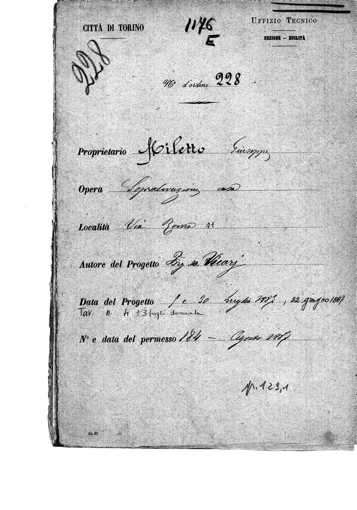 CITTÀ DI TORINO
1176
E
UFFIZIO TECNICO
SEZIONE - EDILITÀ
228
N° d'ordine 228
Proprietario Miletto Giuseppe
Opera Sopraelevazione casa
Località Via Roma
Autore del Progetto Ing.
Data del Progetto 1 e 30 luglio 1887, 22 giugno 1887
Tav. n. 4 + 3 fogli domanda
N° e data del permesso 184 - Agosto 1887